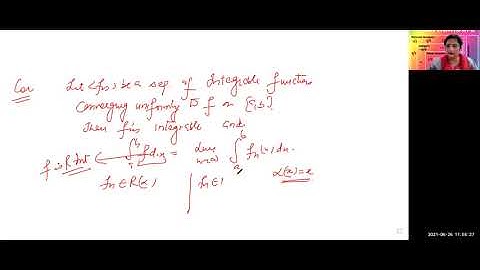 Cor Let <fn> be a seq of Integrable function
Converging uniformly to f on [a,b].
Then f is integrable and
f is R Int ∫ₐᵇ f dx = lim n→∞ ∫ₐᵇ fn(x) dx.
fn ∈ R(α) | fn ∈ α(x)=x
2021-06-26 11:56:27